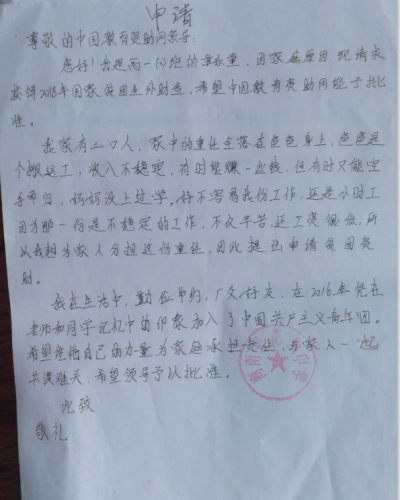 申请
尊敬的中国教育资助网领导:
您好!我是高一(1)班的,因家庭原因,现请求
获得2018年国家贫困生补助金,希望中国教育资助网能予批
准。
我家有三口人,家中的重任全落在爸爸身上,爸爸是
个搬运工,收入不稳定,有时能赚一些钱,但有时只能空
手而归,妈妈没上过学,好不容易找份工作,还是小时工
因为那一份是不稳定的工作,不仅辛苦,还工资很低,所
以我想为家人分担这份重任,因此提出申请贫困资
助。
我在生活中,勤俭节约,广交好友,在2016年凭在
老师和同学记忆中的印象加入了中国共产主义青年团。
希望凭借自己的力量为家庭承担责任,与家人一起
共渡难关,希望领导予以批准。
此致
敬礼